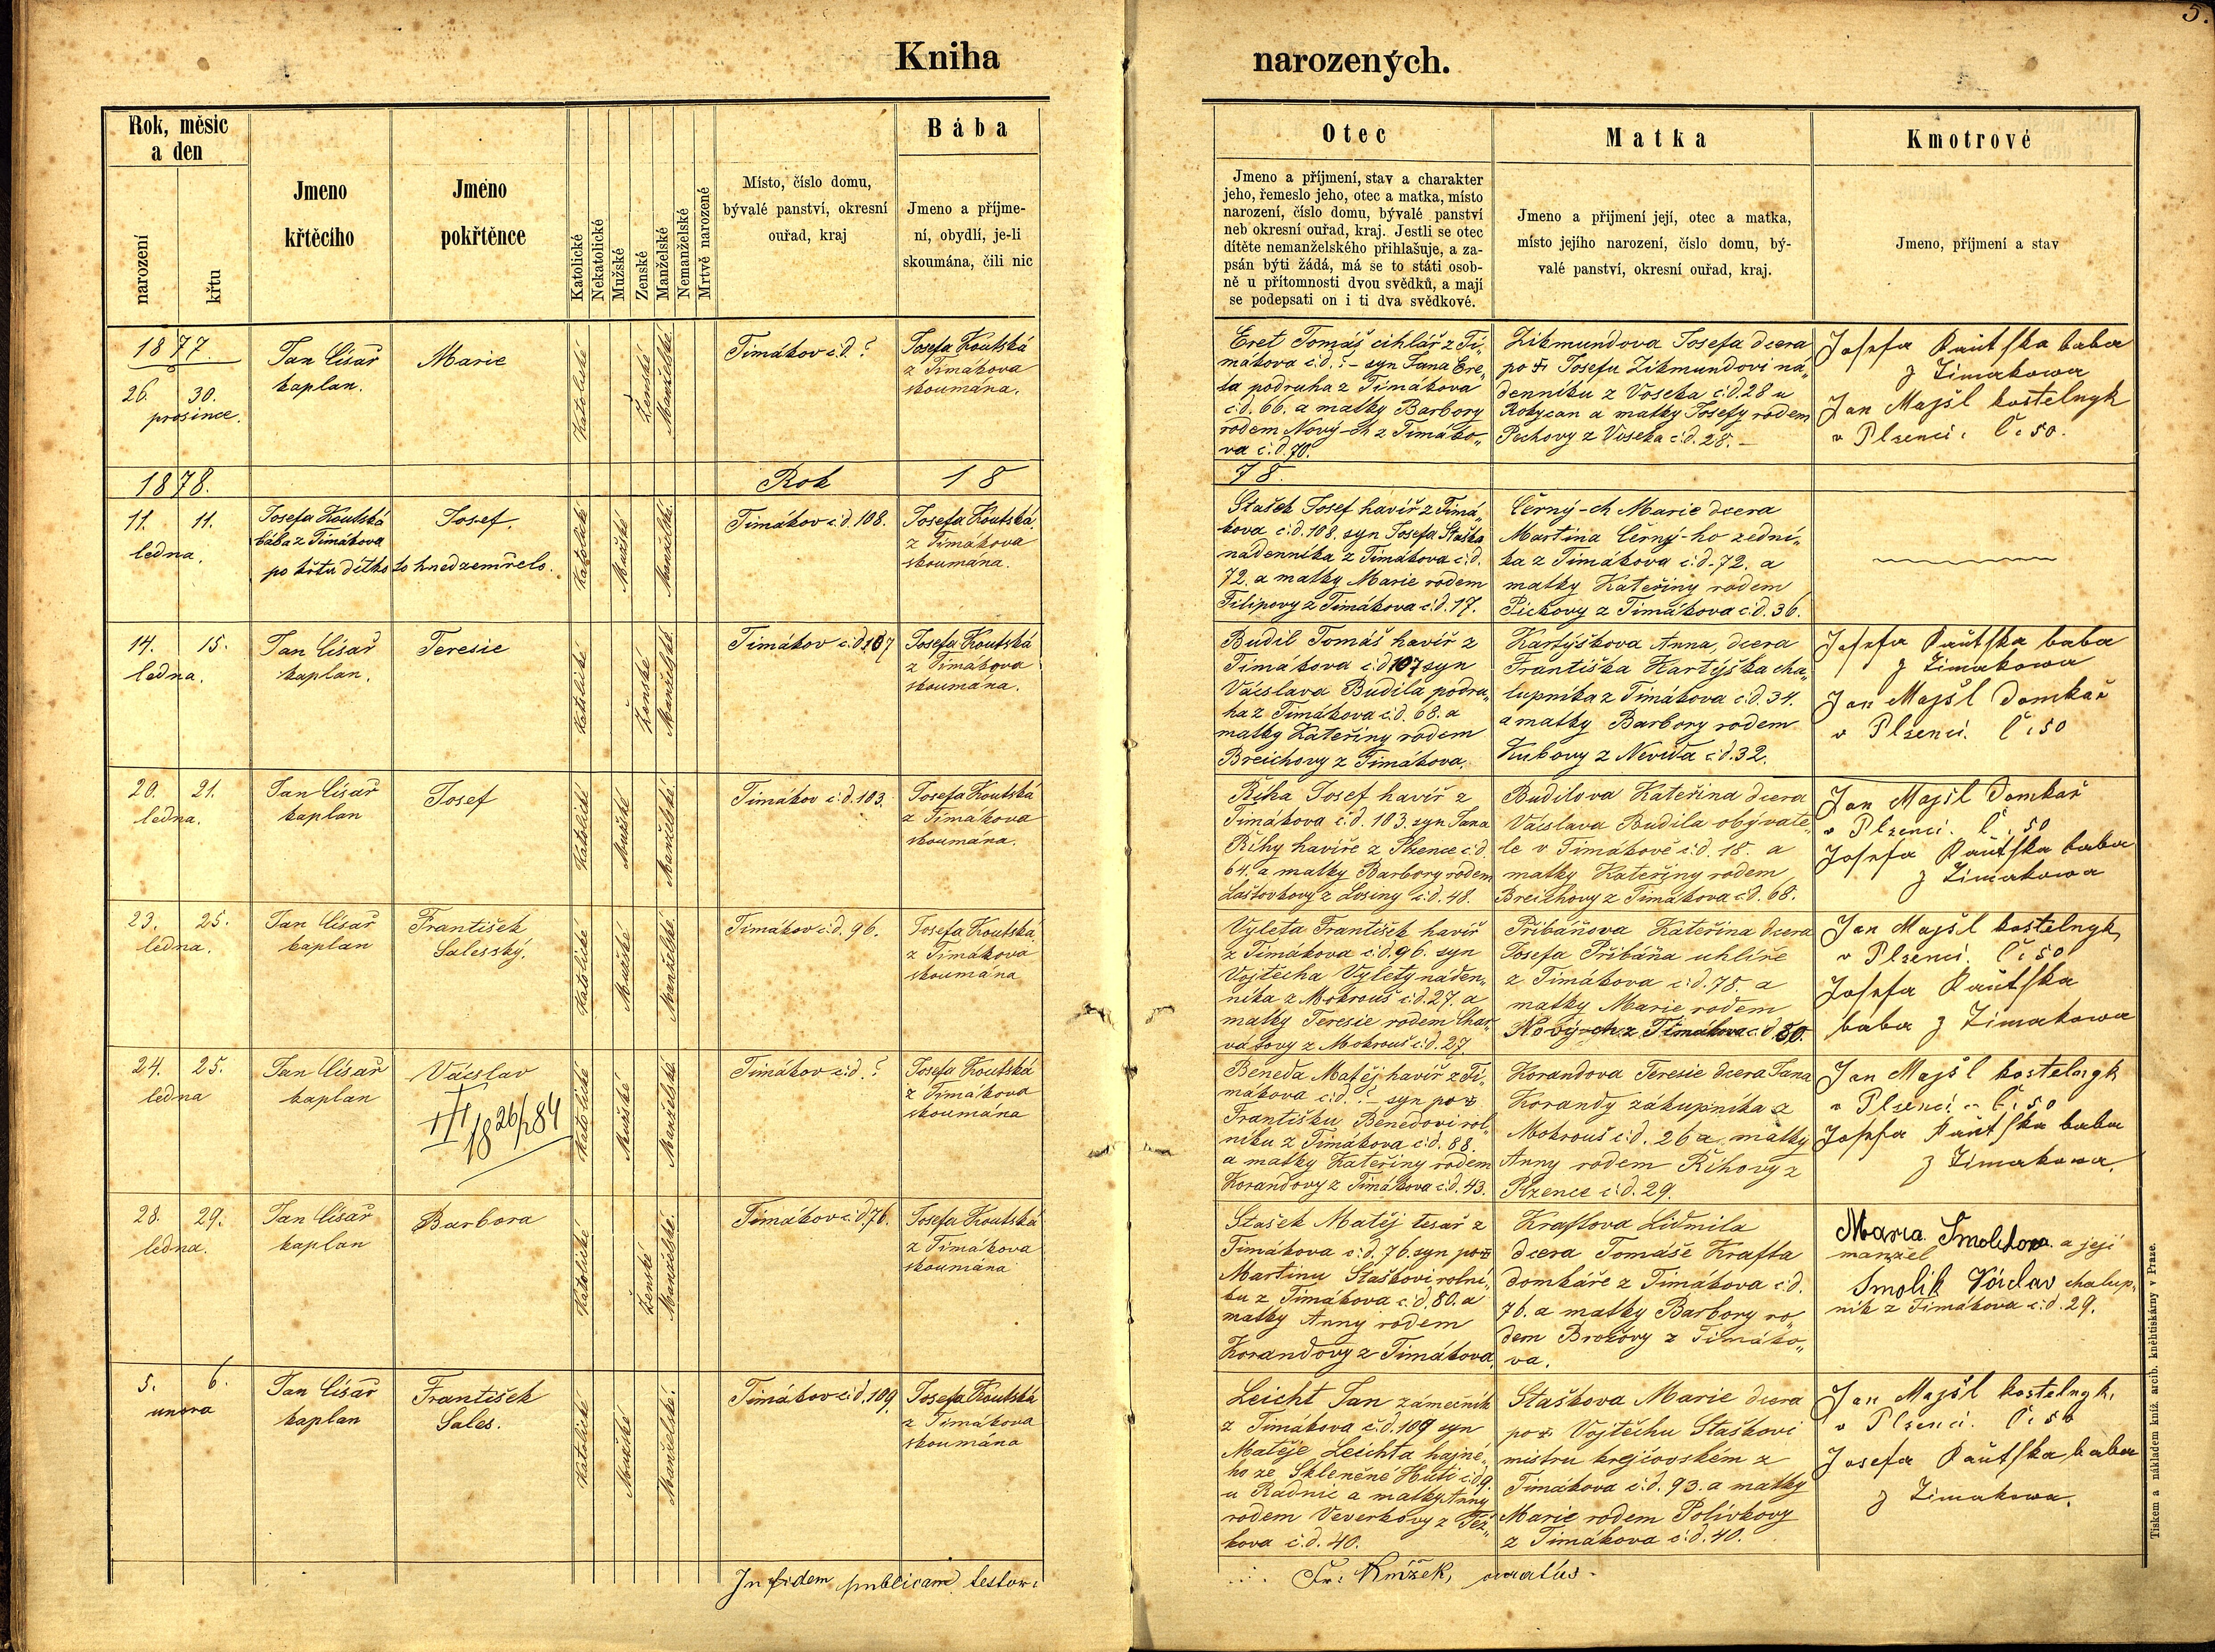 5.
Kniha narozených.
Rok, měsíc
a den
narození
křtu
Jmeno
křtěcího
Jméno
pokřtěnce
Katolické
Nekatolické
Mužské
Ženské
Manželské
Nemanželské
Mrtvě narozené
Místo, číslo domu,
bývalé panství, okresní
ouřad, kraj
Bába
Jmeno a příjme-
ní, obydlí, je-li
skoumána, čili nic
Otec
Jmeno a příjmení, stav a charakter
jeho, řemeslo jeho, otec a matka, místo
narození, číslo domu, bývalé panství
neb okresní ouřad, kraj. Jestli se otec
dítěte nemanželského přihlašuje, a za-
psán býti žádá, má se to státi osob-
ně u přítomnosti dvou svědků, a mají
se podepsati on i ti dva svědkové.
Matka
Jmeno a přijmení její, otec a matka,
místo jejího narození, číslo domu, bý-
valé panství, okresní ouřad, kraj.
Kmotrové
Jmeno, příjmení a stav
1877.
26. 30.
prosince.
Jan Císař
kaplan.
Marie
Katolické
Ženské
Manželské
Timákov č.d.?
Josefa Koutská
z Timákova
skoumána.
Eret Tomáš cihlář z Ti„
mákova č.d.?- syn Jana Ere„
ta podruha z Timákova
č.d. 66. a matky Barbory
rodem Nový-ch z Timáko„
va č.d. 70.
Zikmundova Josefa dcera
po † Josefu Zikmundovi ná„
denníku z Voseka č.d. 28 u
Rokycan a matky Josefy rodem
Pechovy z Voseka č.d. 28.-
Josefa Kautska baba
z Timakowa
Jan Majšl kostelnyk
v Plzenci. Č: 50.
1878.
Rok
18
78.
11. 11.
ledna.
Josefa Koutská
bába z Timákova
Josef.
po křtu dítko to hned zemřelo.
Katolické
Mužské
Manželské
Timákov č.d. 108.
Josefa Koutská.
z Timákova
skoumána.
Stašek Josef havíř z Timá„
kova č.d. 108. syn Josefa Staška
nádenníka z Timákova č.d.
72. a matky Marie rodem
Filipovy z Timákova č.d. 17.
Černý-ch Marie dcera
Martina Černý-ho zední„
ka z Timákova č.d. 72. a
matky Kateřiny rodem
Pickovy z Timákova č.d. 36.
14. 15.
ledna.
Jan Císař
kaplan.
Teresie
Katolické
Ženské
Manželské
Timákov č.d. 107
Josefa Koutská
z Timákova
skoumána.
Budil Tomáš havíř z
Timákova č.d 107 syn
Václava Budila podru„
ha z Timákova č.d. 68. a
matky Kateřiny rodem
Breichovy z Timákova.
Kartýškova Anna, dcera
Františka Kartýška cha„
lupníka z Timákova č.d. 34.
a matky Barbory rodem
Kubovy z Nevida č.d. 32.
Josefa Kautska baba
z Timakowa
Jan Majšl Domkař
v Plzenci. Č: 50
20. 21.
ledna.
Jan Císař
kaplan
Josef
Katolické
Mužské
Manželské
Timákov č.d. 103.
Josefa Koutská
z Timákova
skoumána.
Říha Josef havíř z
Timákova č.d. 103. syn Jana
Říhy havíře z Plzence č.d.
64. a matky Barbory rodem
Laštovkovy z Losiny č.d. 48.
Budilova Kateřina dcera
Václava Budila obývate„
le v Timákově č.d. 18. a
matky Kateřiny rodem
Breichovy z Timákova č.d. 68.
Jan Majšl Domkař
v Plzenci. Č: 50
Josefa Kautska baba
z Timakowa
23. 25.
ledna.
Jan Císař
kaplan
František
Salesský.
Katolické
Mužské
Manželské
Timákov č.d. 96.
Josefa Koutská
z Timákova
skoumána
Vyleta František havíř
z Timákova č.d. 96. syn
Vojtěcha Vylety náden„
níka z Mokrouš č.d. 27. a
matky Teresie rodem Char„
vátovy z Mokrouš č.d. 27.
Přibáňova Kateřina dcera
Josefa Přibáňa uhlíře
z Timákova č.d. 78. a
matky Marie rodem
Nový-ch z Timákova č.d 80.
Jan Majšl kostelnyk
v Plzenci. Č: 50
Josefa Kautska
baba z Timakowa
24. 25.
ledna
Jan Císař
kaplan
Václav
Katolické
Mužské
Manželské
Timákov č.d.?
Josefa Koutská
z Timákova
skoumána
Beneda Matěj havíř z Ti„
mákova č.d.?- syn po †
Františku Benedovi rol„
níku z Timákova č.d. 88.
a matky Kateřiny rodem
Korandovy z Timákova č.d. 43.
Korandova Teresie dcera Jana
Korandy zákupníka z
Mokrouš č.d. 26 a matky
Anny rodem Říhovy z
Plzence č.d. 29.
Jan Majšl kostelnyk
v Plzenci Č: 50
Josefa Kautska baba
z Timakowa.
28. 29.
ledna.
Jan Císař
kaplan
Barbora
Katolické
Ženské
Manželské.
Timákov č.d. 76.
Josefa Koutská
z Timákova
skoumána
Stašek Matěj tesař z
Timákova č.d. 76. syn po †
Martinu Staškovi rolní„
ku z Timákova č.d. 80. a
matky Anny rodem
Korandovy z Timákova.
Kraftova Lidmila
dcera Tomáše Krafta
domkáře z Timákova č.d.
76. a matky Barbory ro„
dem Brožovy z Timáko„
va.
Maria Smolikova a její
manžel
Smolik Václav chalup„
ník z Timákova č.d. 29.
5. 6.
unora
Jan Císař
kaplan
František
Sales.
Katolické
Mužské
Manželské.
Timákov č.d. 109.
Josefa Koutská
z Timákova
skoumána
Leicht Jan zámečník
z Timákova č.d. 109 syn
Matěje Leichta hajné„
ho ze Skleněné Huti č.d 9.
u Radnic a matky Anny
rodem Veverkovy z Těž„
kova č.d. 40.
Staškova Marie dcera
po † Vojtěchu Staškovi
mistru krejčovském z
Timákova č.d. 93. a matky
Marie rodem Polívkovy
z Timákova č.d. 40.
Jan Majšl kostelnyk.
v Plzenci. Č: 50
Josefa Kautska baba
z Timakowa.
In fidem publicam testor:
Fr: Knížek,
Tiskem a nákladem kníž. arcib. kněhtiskárny v Praze.